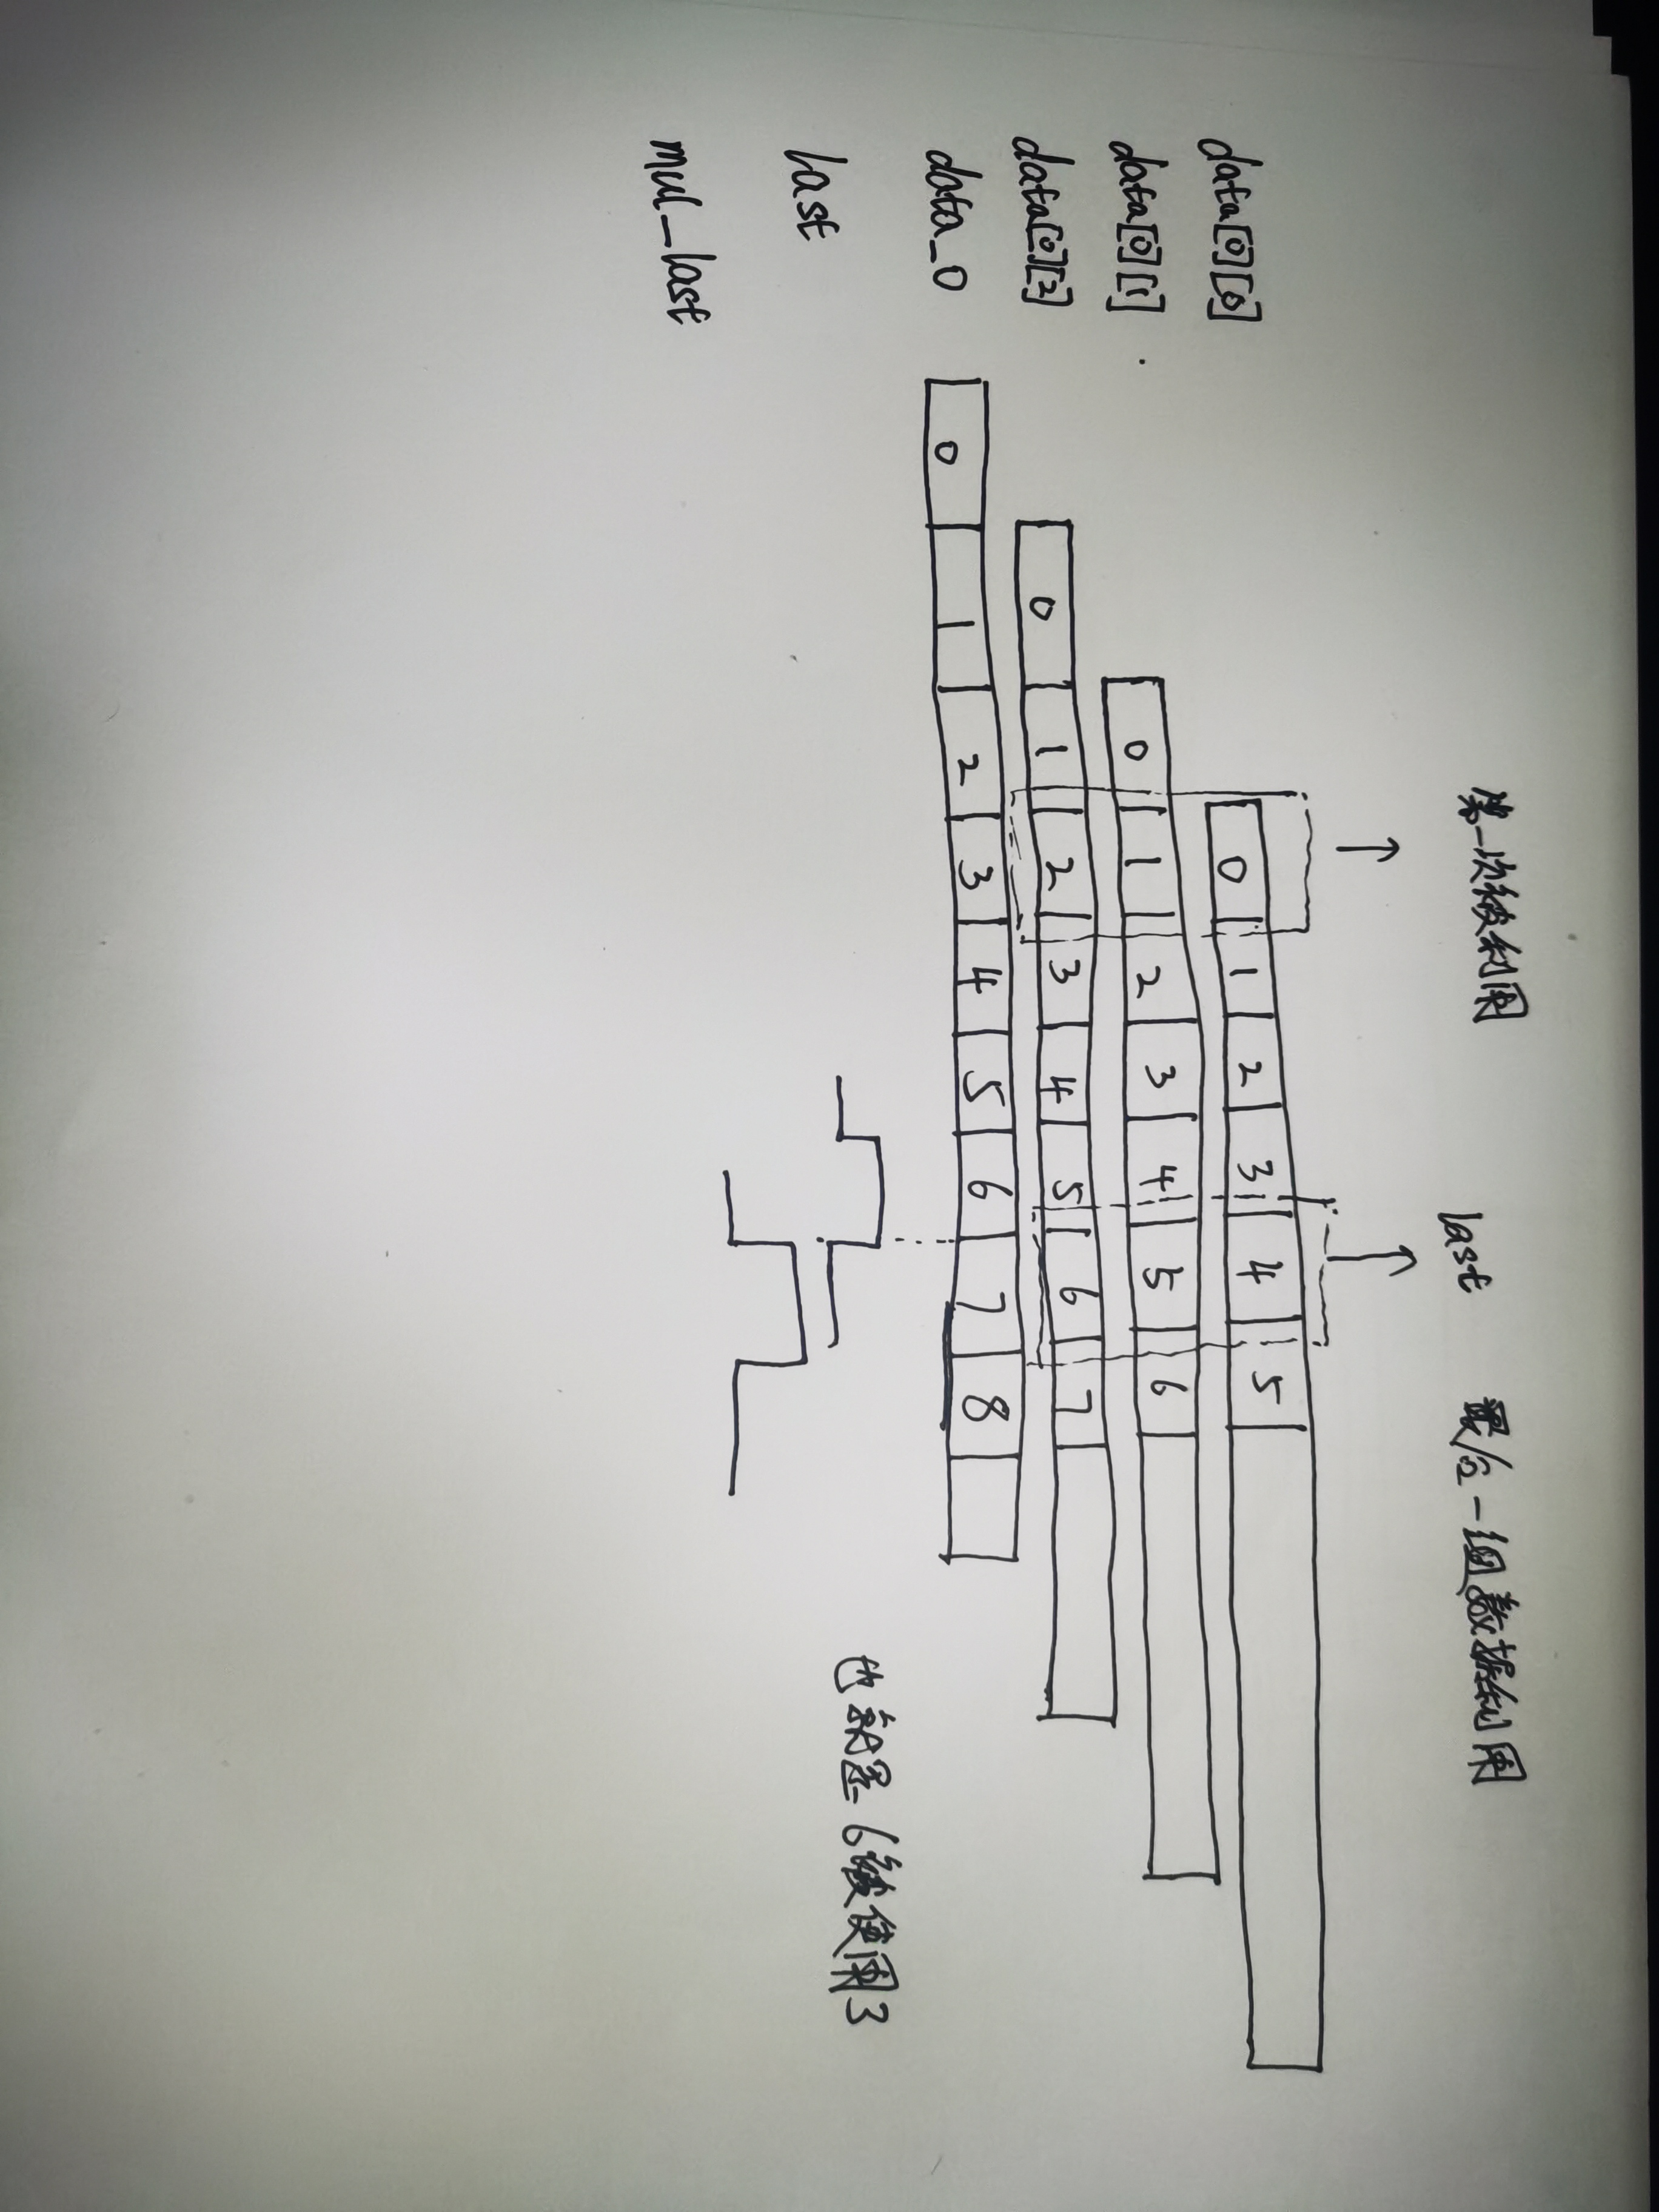 第一次被利用
last 最后一组数据利用
data[0][0] 0 1 2 3 4 5
data[0][1] 0 1 2 3 4 5 6
data[0][2] 0 1 2 3 4 5 6 7
data_0 0 1 2 3 4 5 6 7 8
last 也就是 6被使用了
mul_last